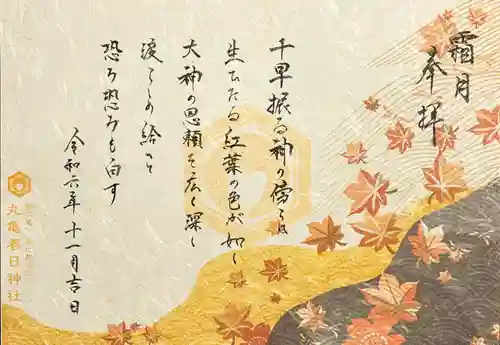 霜月
奉拝
千早振る神の傍らに
生ひたる紅葉の色が如し
大神の恩頼を広く深く
給へと
恐み恐みも白す
令和六年十一月吉日
丸亀春日神社